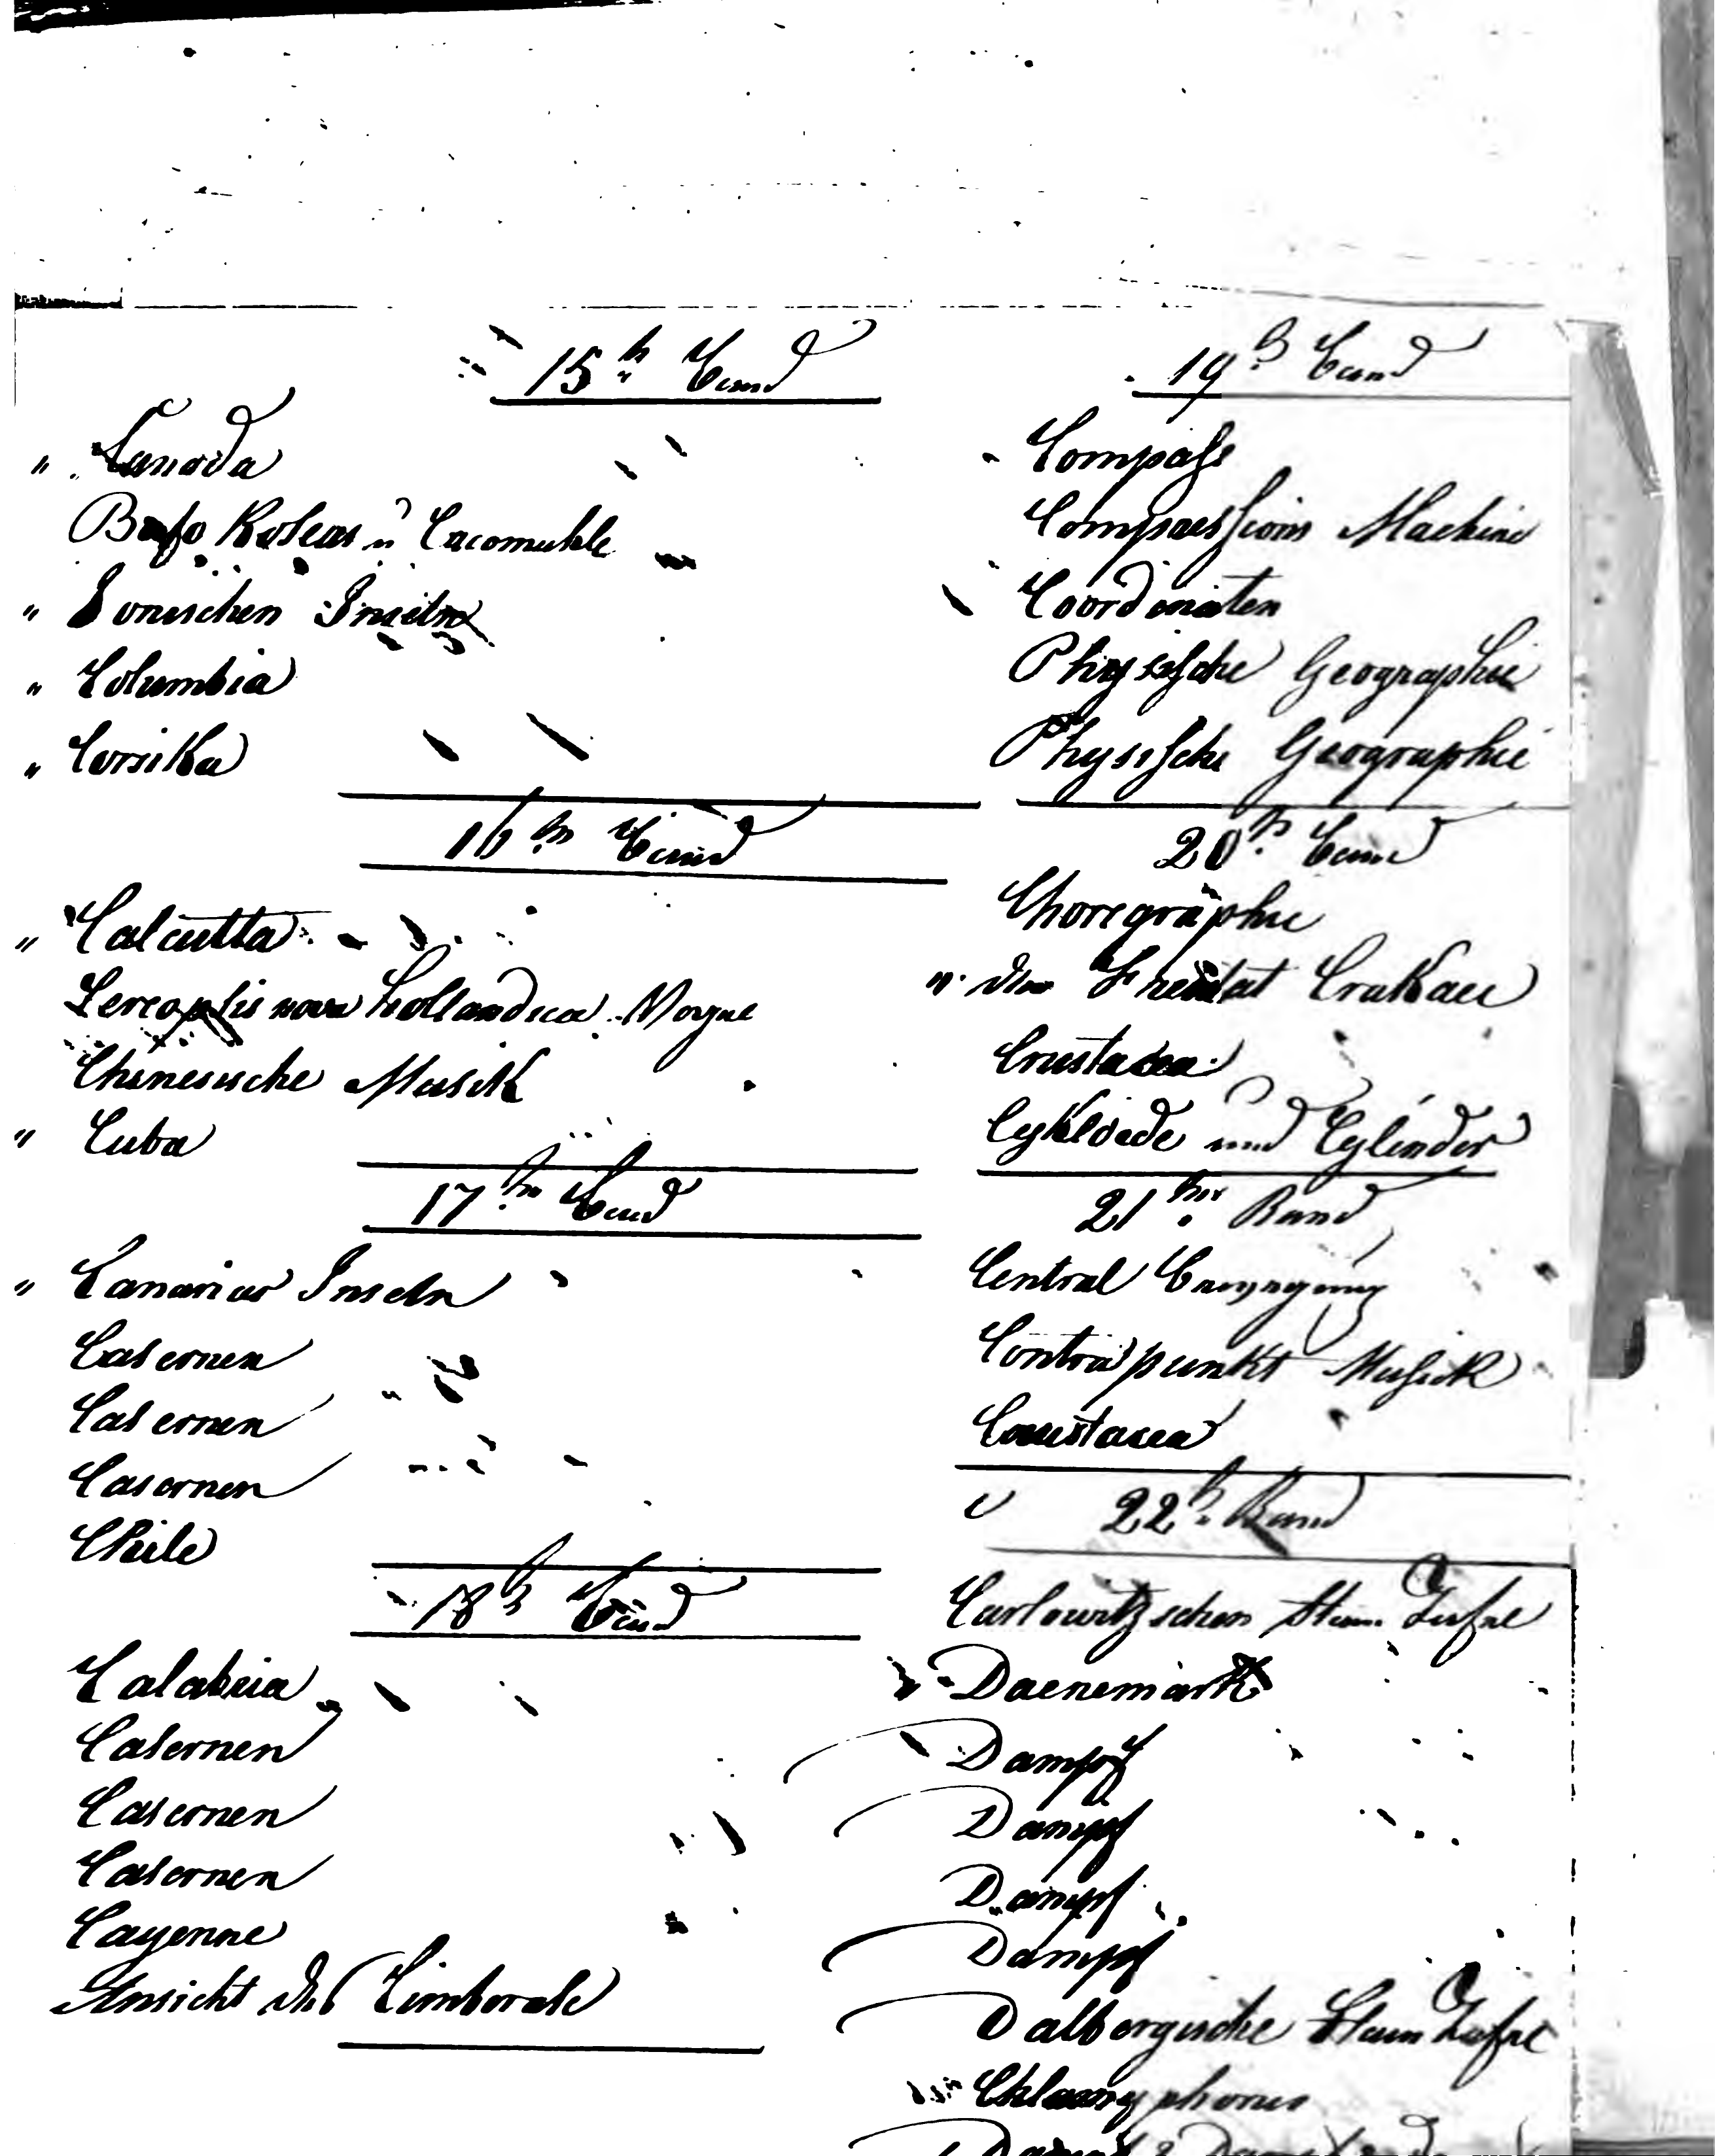 15t Band
" Canada
Bass Reliefs u
" Ionischen Inseln
" Columbia
" Corsika
16tr Band
" Calcutta
Cereopsis nova hollandica
Chinesische Musik
" Cuba
17tr Band
" Canarien Inseln
Casernen
Casernen
Casernen
Chile
18tr Band
Calabria
Casernen
Casernen
Casernen
Cayenne
Ansicht des Cimborale
19tr Band
Compaſs
Compreſsions Machine
Coordinaten
Physiſche Geographie
Physiſche Geographie
20tr Band
Choregraphie
" der Freistat Crakau
Crustacea
Cykloide und Cylinder
21ter Band
Central Bewegung
Contrapunkt Muſik
Crustacea
22tr Band
Carlowitzschen Stam Tafel
Daenemark
Dampf
Dampf
Dampf
Dampf
Dalbergische Stam Tafel
Chlamyphorus